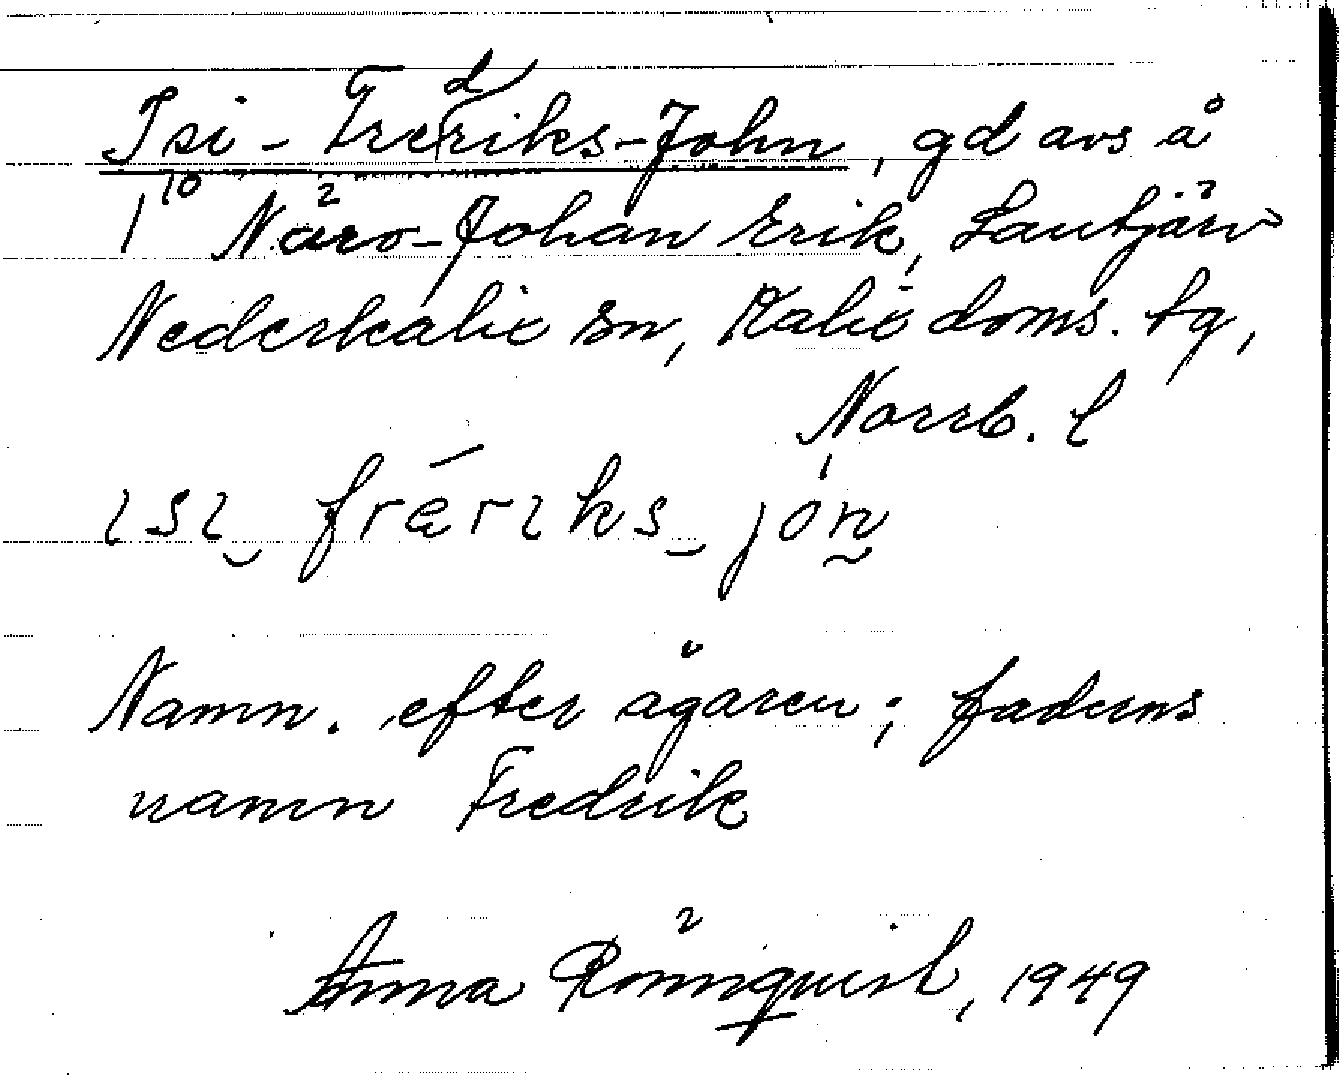 Isi-Fredriks-John, gd avs å
1¹⁰ Näro-Johan Erik, Lantjärv
Nederkalix sn, Kalix doms. tg,
Norrb. l
ɩsɩ‿ frǽrɩks‿ jón
Namn. efter ägaren; faderns
namn Fredrik
Anna Rönnquist, 1949